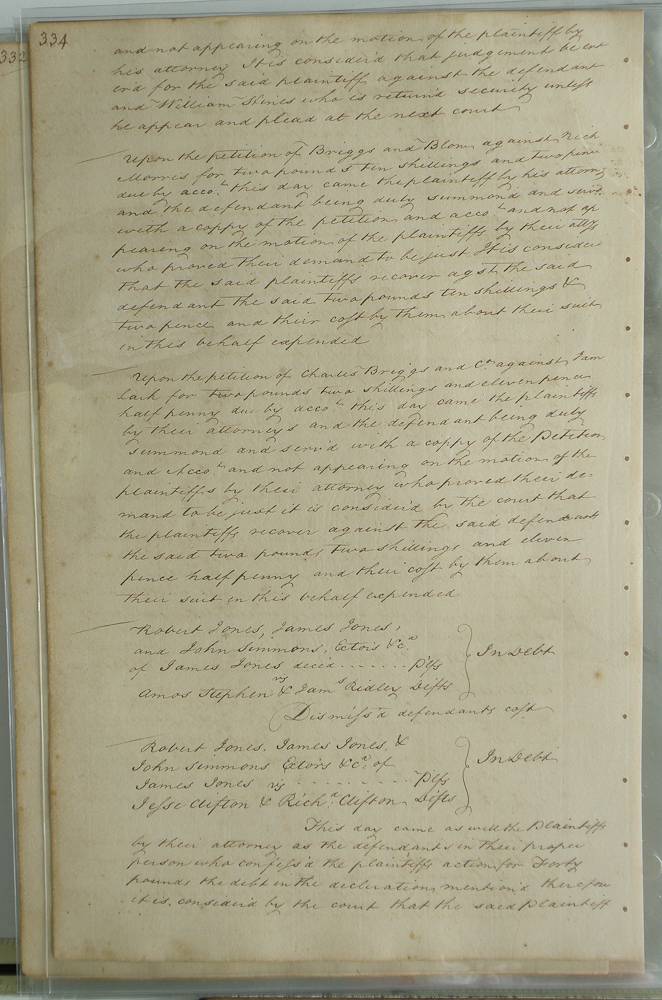 334
332
and not appearing on the motion of the plaintiff by
his attorney It is consider'd that judgement be ent
er'd for the said plaintiff against the defendant
and William Hines who is return'd security unless
he appear and plead at the next court
Upon the petition of Briggs and Blow against Rich
Morris for two pounds ten shillings and two pence
due by acco.t this day came the plaintiff by his attorney
and the defendant being duly summond and serv'd
with a coppy of the petition and acco.t and not ap
pearing on the motion of the plaintiffs by their atty
who proved their demand to be just It is consider
that the said plaintiffs recover agst the said
defendant the said two pounds ten shillings &
two pence and their cost by them about their suit
in this behalf expended
Upon the petition of Charles Briggs and Co. against Sam
Lark for two pounds two shillings and eleven pence
half penny due by acco.t this day came the plaintiffs
by their attorneys and the defendant being duly
summond and serv'd with a coppy of the Petition
and Acco.t and not appearing on the motion of the
plaintiffs by their attorney who proved their de-
mand to be just it is consider'd by the court that
the plaintiffs recover against the said defendant
the said two pounds two shillings and eleven
pence half penny and their cost by them about
their suit in this behalf expended
Robert Jones, James Jones,
and John Simmons, Ectors &c.a
of James Jones decd ....... Plfs
vs
Amos Stephen & Jam.s Ridley Defts
In Debt
Dismiss'd defendants cost
Robert Jones, James Jones, &
John Simmons Ectors &c.a of
James Jones vs ........... Plfs
Jesse Clifton & Rich.d Clifton Defts
In Debt
This day came as well the Plaintiffs
by their attorney as the defendants in their proper
person who confess'd the plaintiffs action for Forty
pounds the debt in the decleration mention'd therefore
it is consider'd by the court that the said Plaintiff